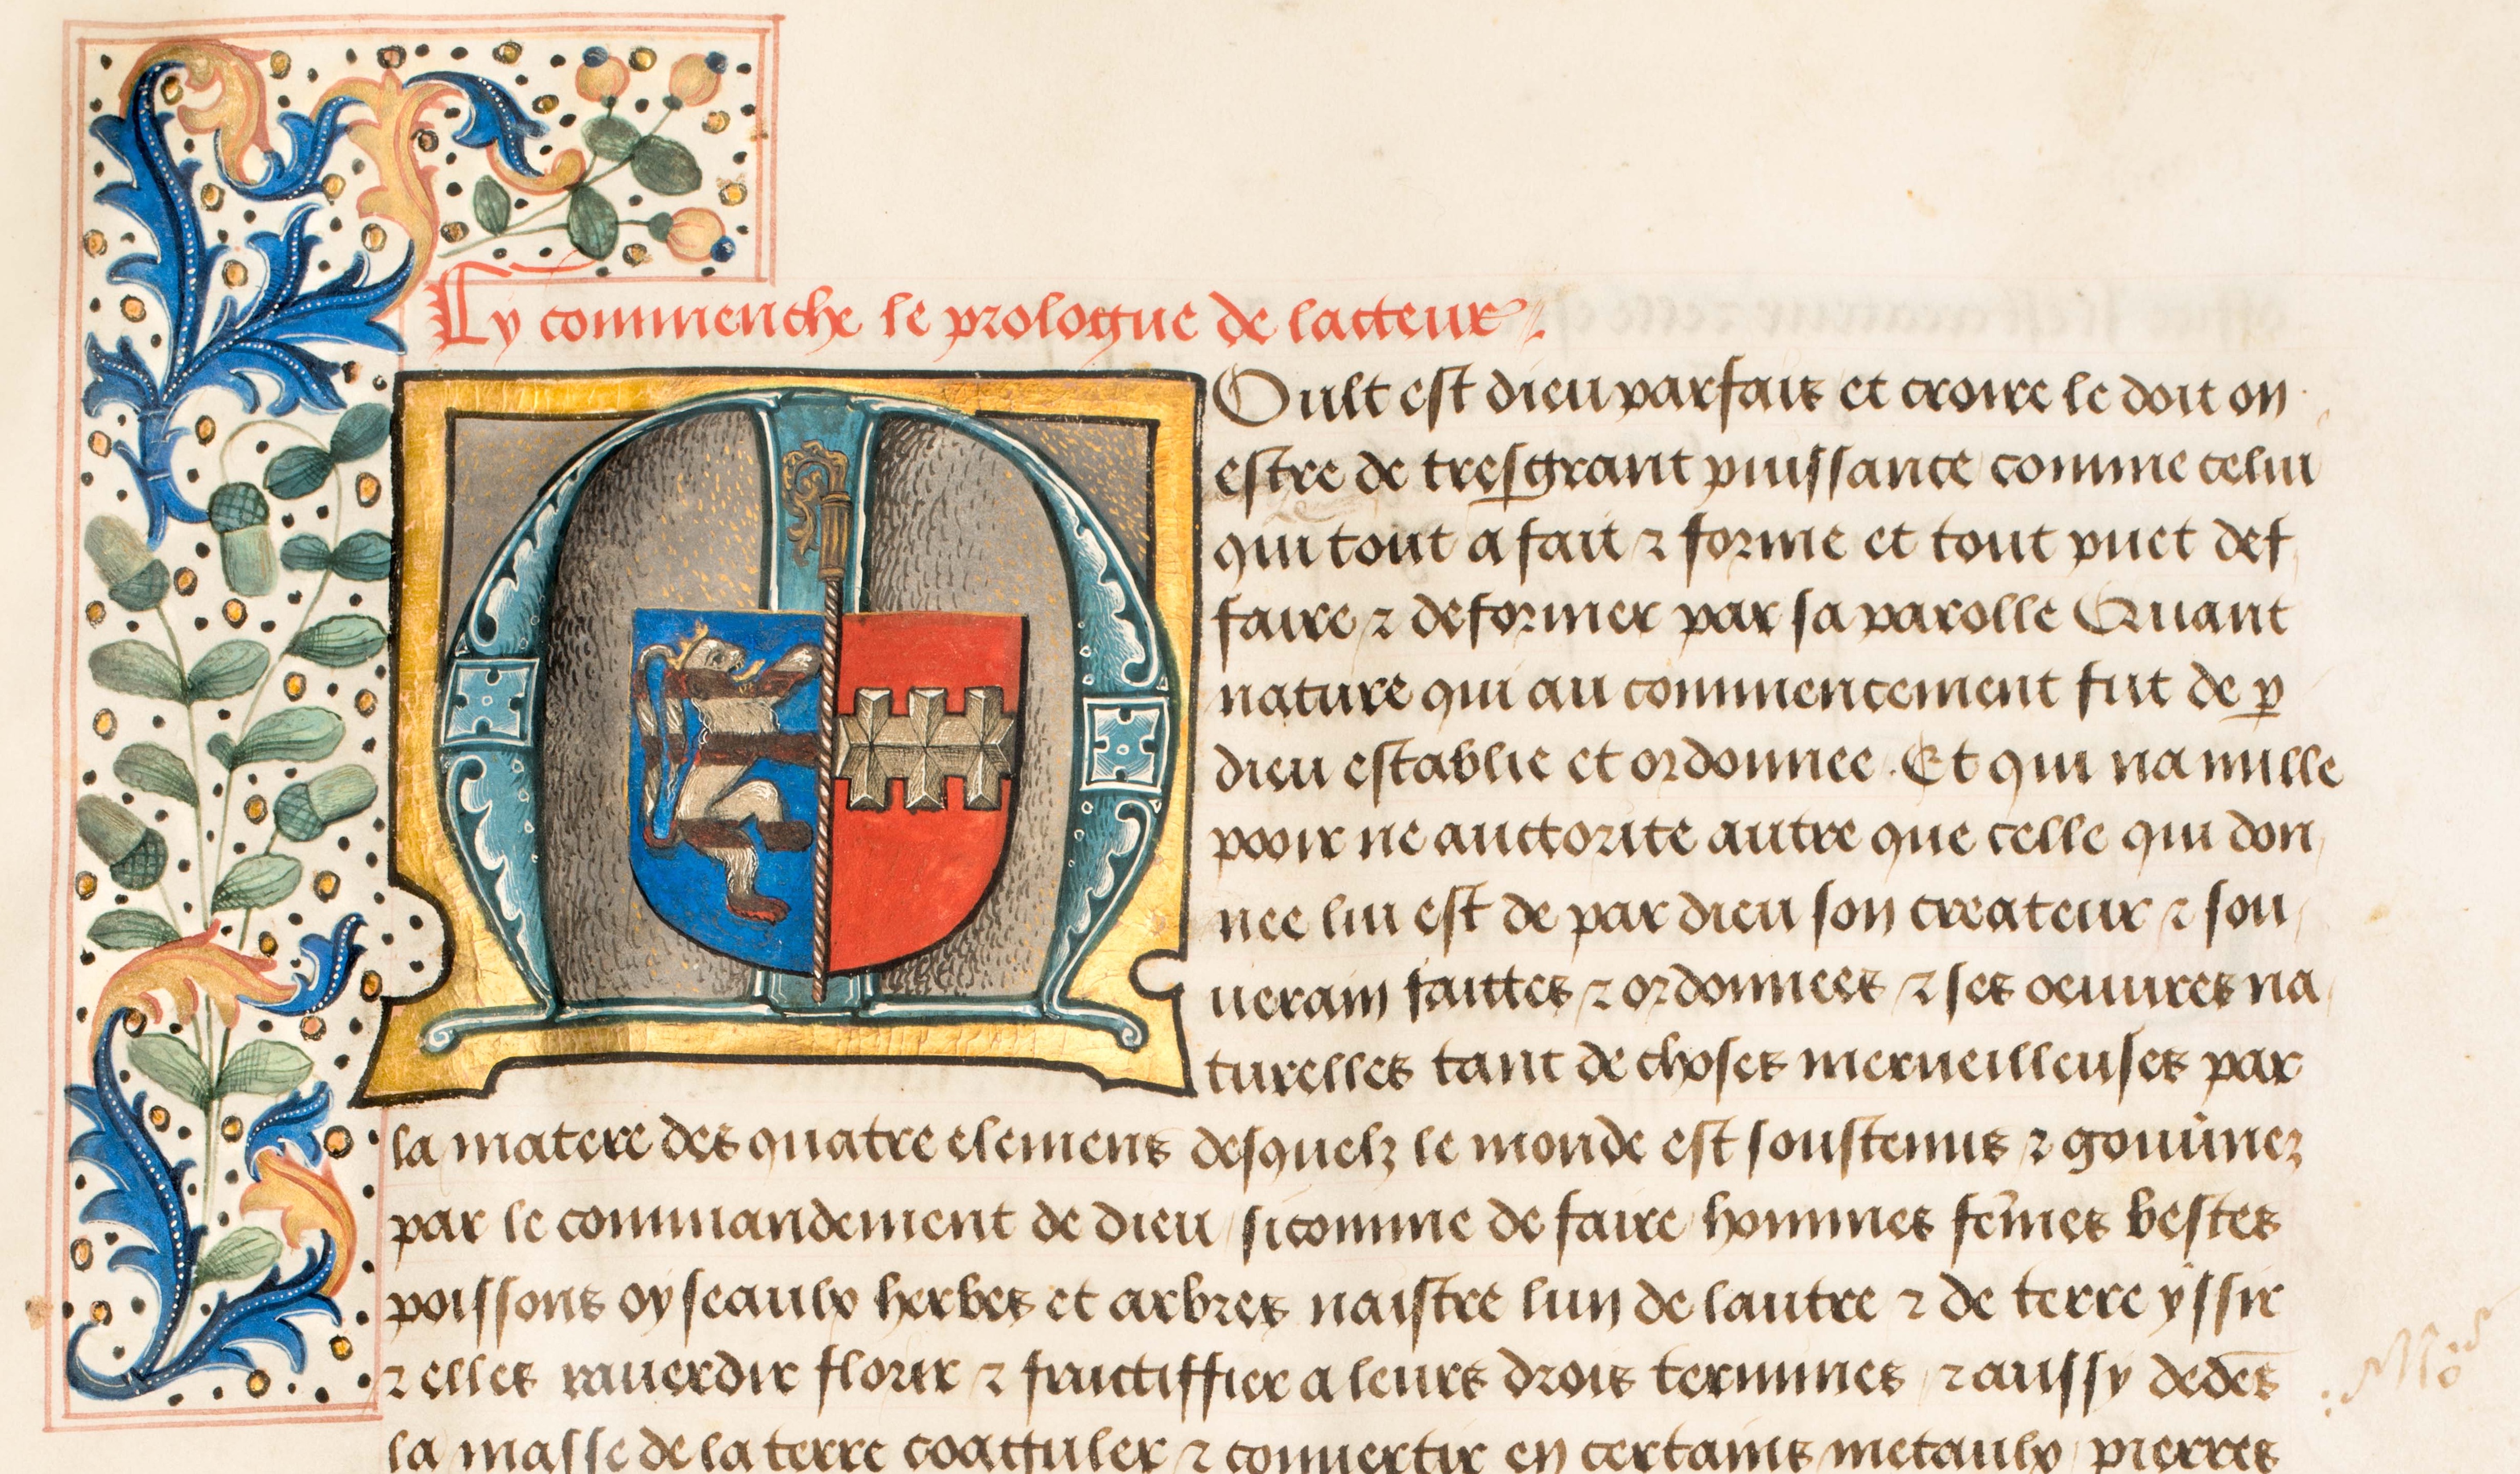 Cy commenche le prologue de lacteur
MOult est dieu parfais et croire le doit on
estre de tresgrant puissance comme celui
qui tout a fait ⁊ forme et tout puet def
faire ⁊ deformer par sa parolle Quant
nature qui au commencement fut de ꝑ
dieu establie et ordonnee. Et qui na nulle
pooir ne auctorite autre que celle qui don
nee lui est de par dieu son createur ⁊ sou
uerain faittes ⁊ ordonnees ⁊ ses oeuures na
turelles tant de choses merueilleuses par
la matere des quatre elemens desquelz le monde est soustenus ⁊ gouu̾nez
par le commandement de dieu / sicomme de faire hommes fem̄es bestes
poissons oyseaulx herbes et arbres naistre lun de lautre ⁊ de terre yssir
⁊ elles rauerdir florir ⁊ fructiffier a leurs drois termines / ⁊ aussy dedēs
la masse de la terre coaguler ⁊ conuertir en certains metaulx / pierres